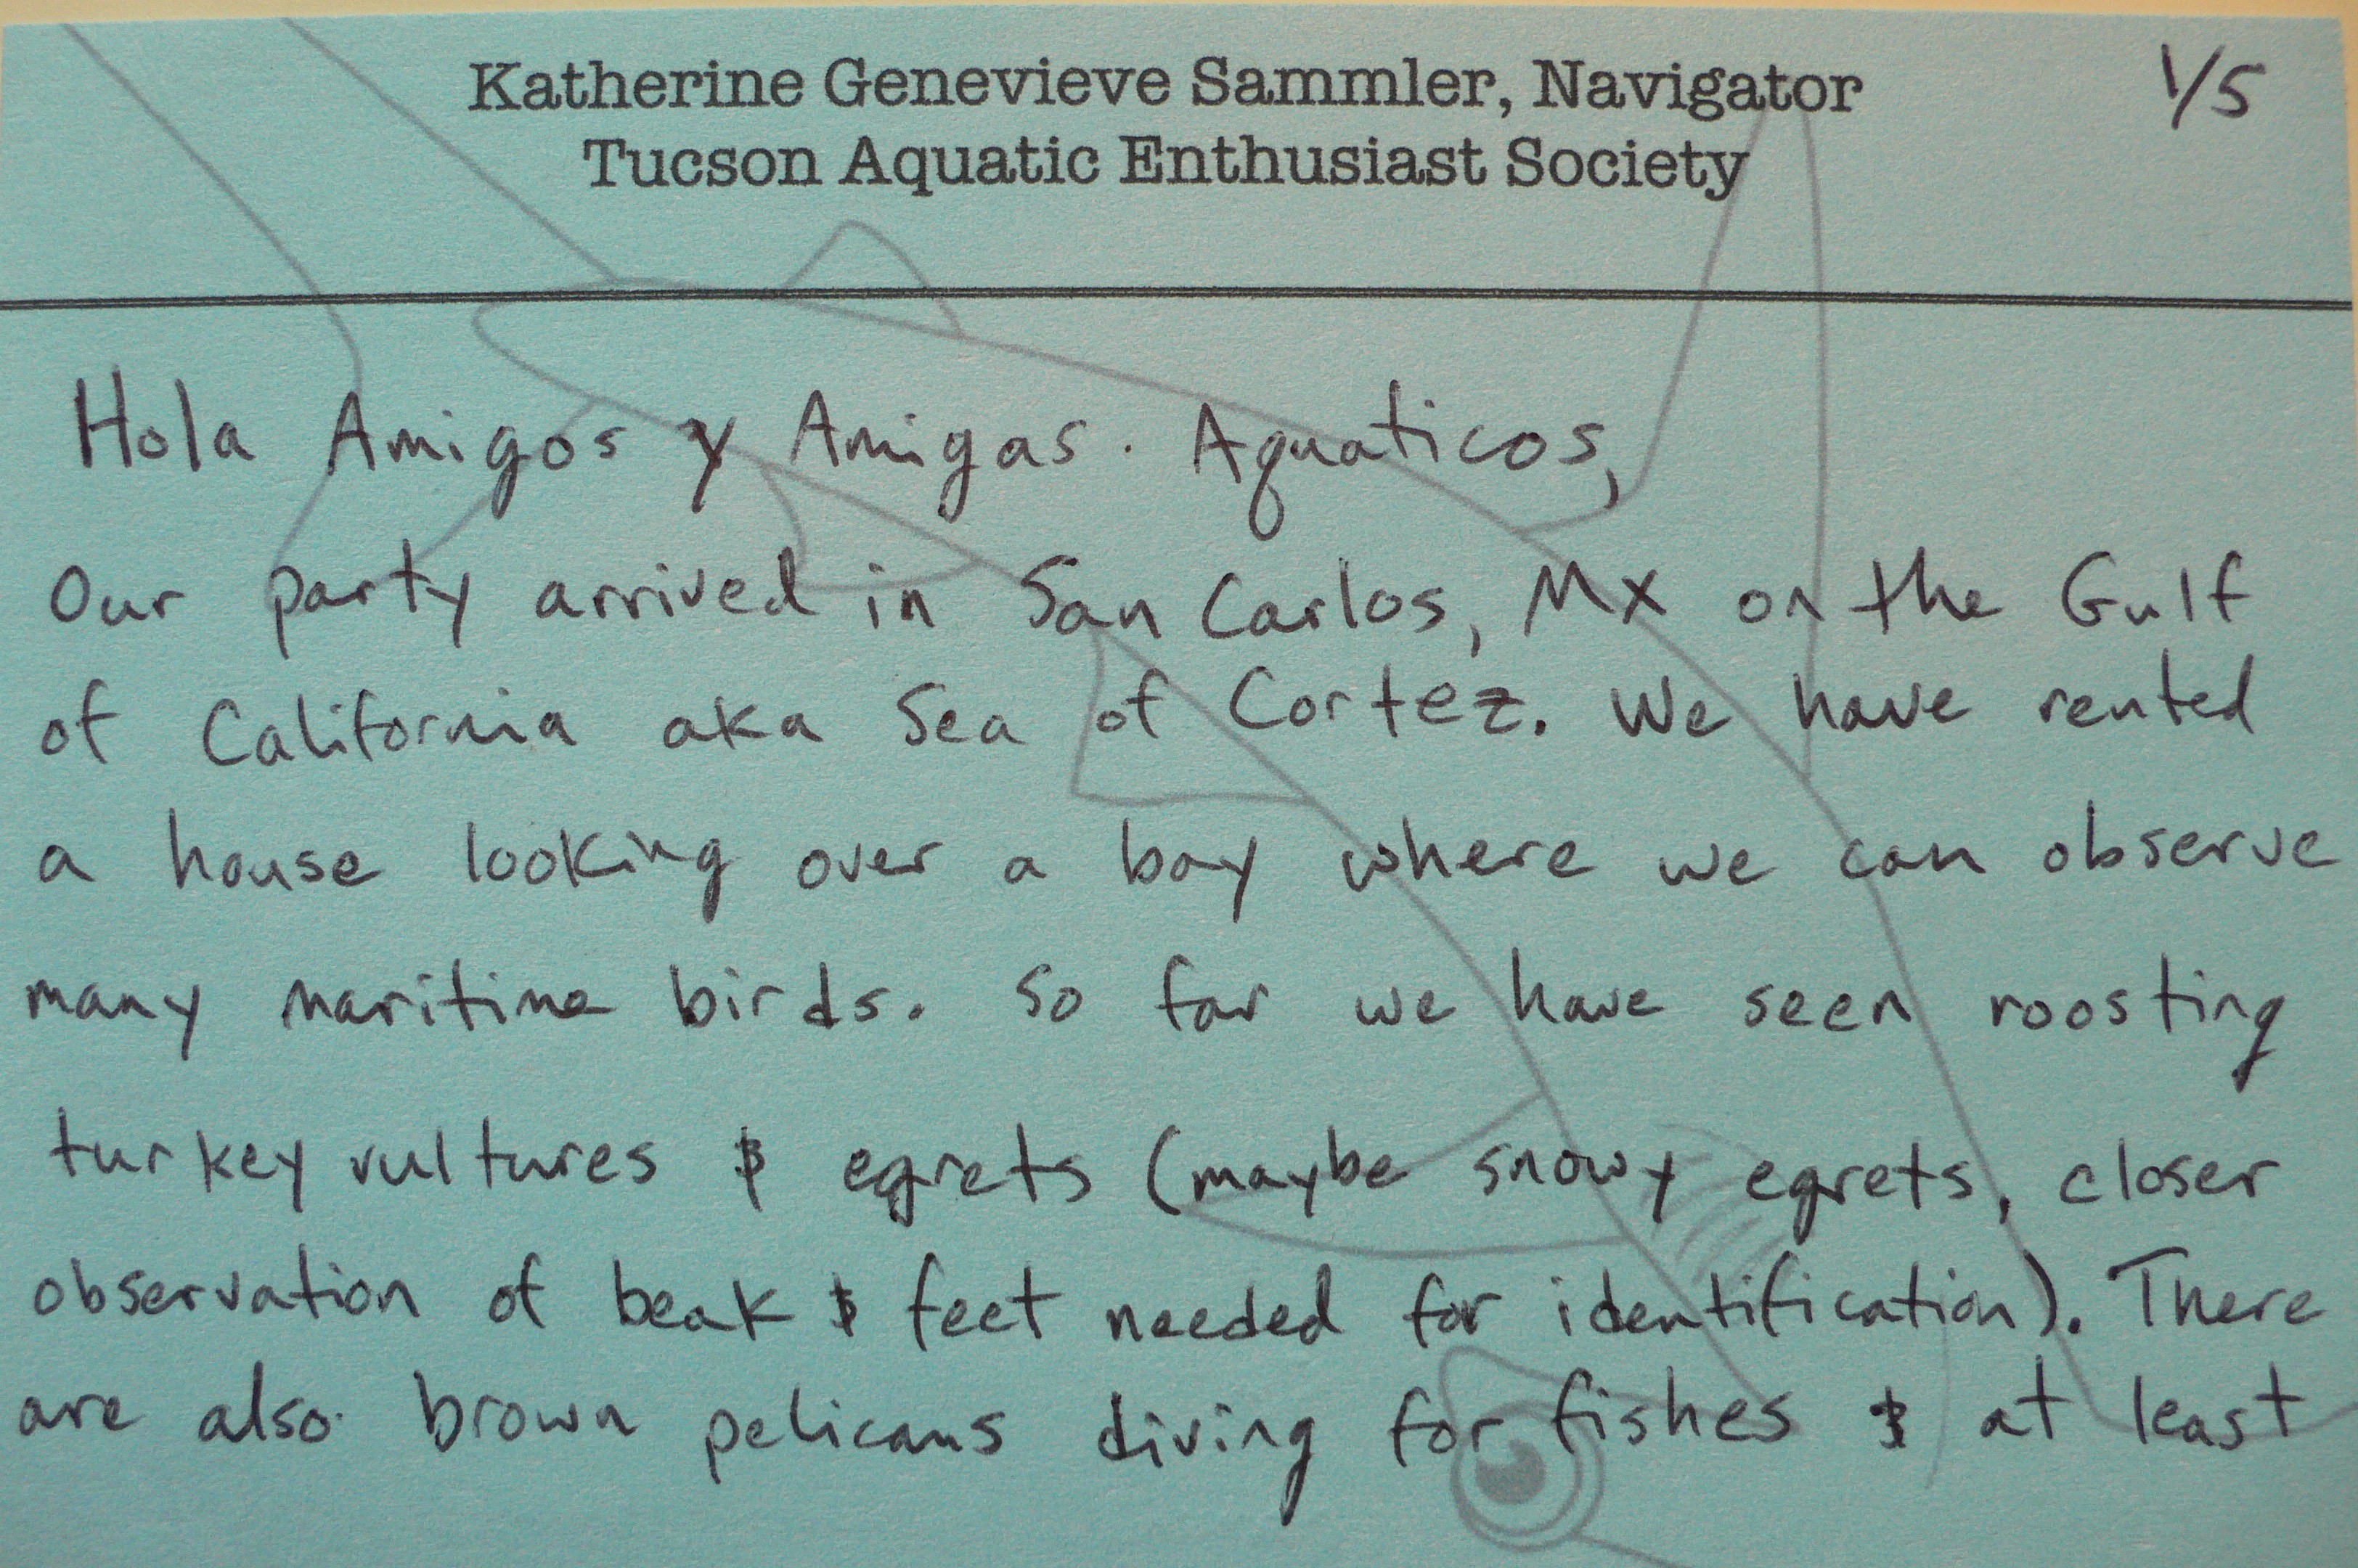 Katherine Genevieve Sammler, Navigator 1/5
Tucson Aquatic Enthusiast Society
Hola Amigos y Amigas. Aquaticos,
Our party arrived in San Carlos, MX on the Gulf
of California aka Sea of Cortez. We have rented
a house looking over a bay where we can observe
many maritime birds. So far we have seen roosting
turkey vultures & egrets (maybe snowy egrets, closer
observation of beak & feet needed for identification). There
are also brown pelicans diving for fishes & at least